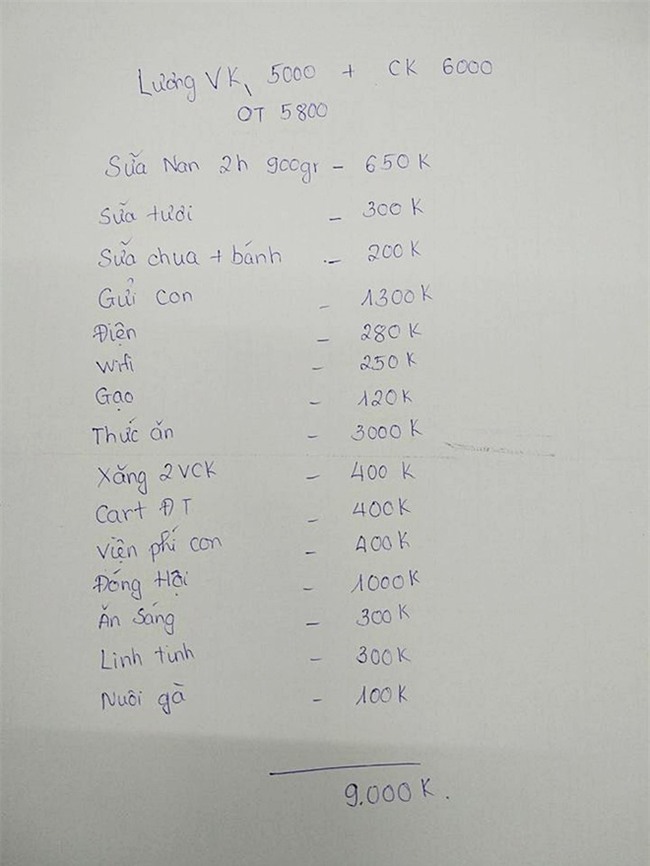 Lương VK 5000 + CK 6000
OT 5800
Sữa Nan 2h 900gr - 650K
Sữa tươi - 300K
Sữa chua + bánh - 200K
Gửi con - 1300K
Điện - 280K
Wifi - 250K
Gạo - 120K
Thức ăn - 3000K
Xăng 2VCK - 400 K
Cart ĐT - 400K
Viện phí con - 400K
Đóng Hụi - 1000K
Ăn sáng - 300K
Linh tinh - 300K
Nuôi gà - 100K
9.000K.